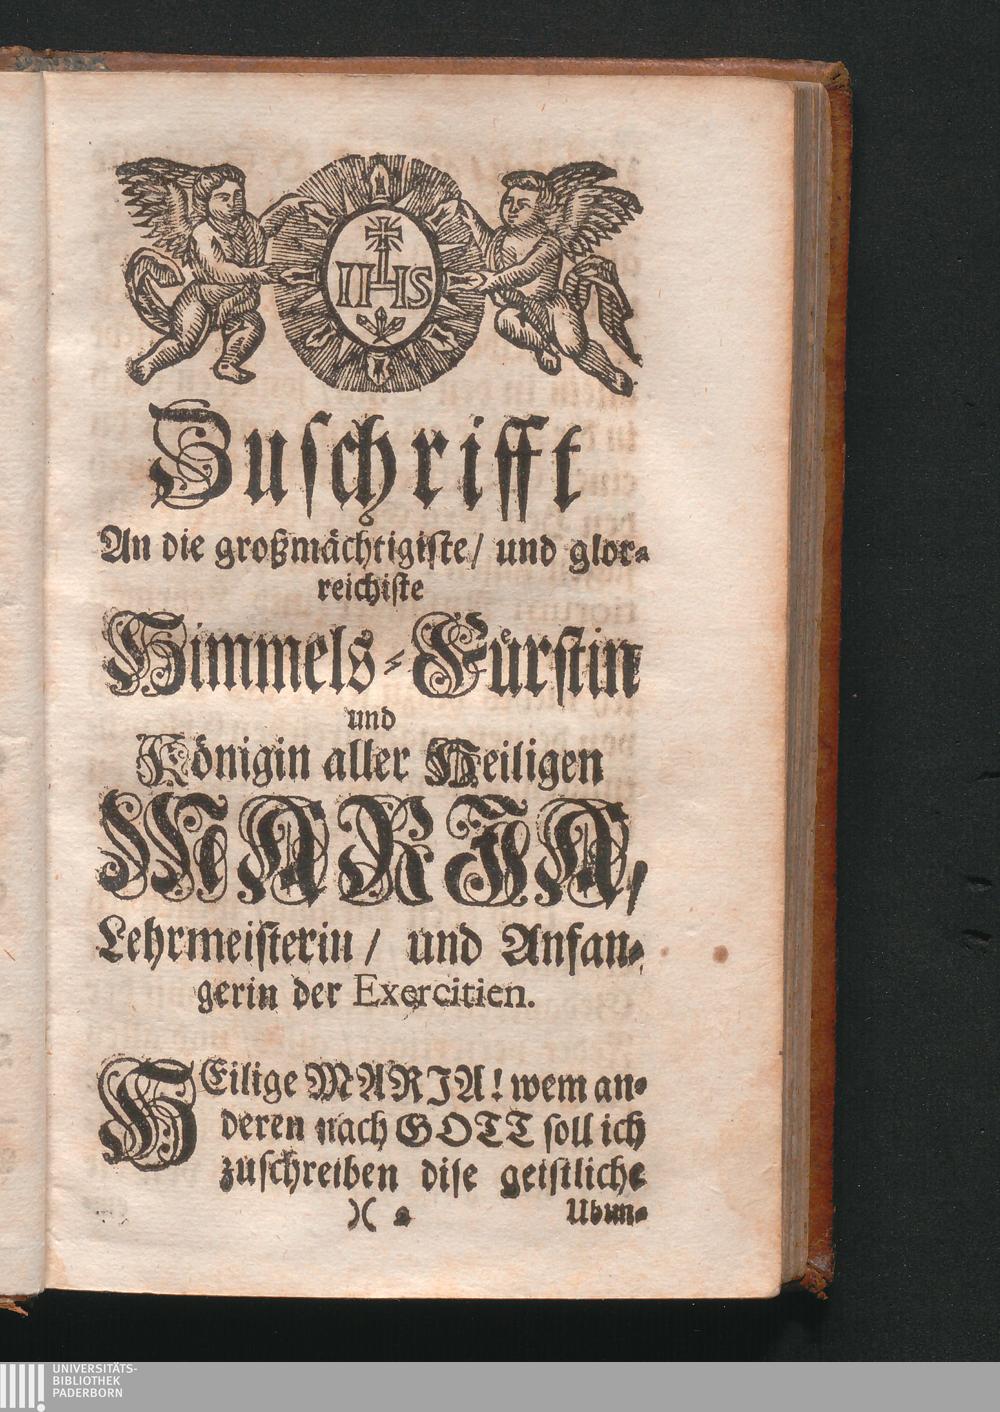 IHS
Zuschrifft
An die großmächtigiste/ und glor-
reichiste
Himmels-Fürstin
und
Königin aller Heiligen
MARJA,
Lehrmeisterin/ und Anfan-
gerin der Exercitien.
HEilige MARJA! wem an-
deren nach GOTT soll ich
zuschreiben dise geistliche
)( 2 Ubun-
UNIVERSITÄTS-
BIBLIOTHEK
PADERBORN